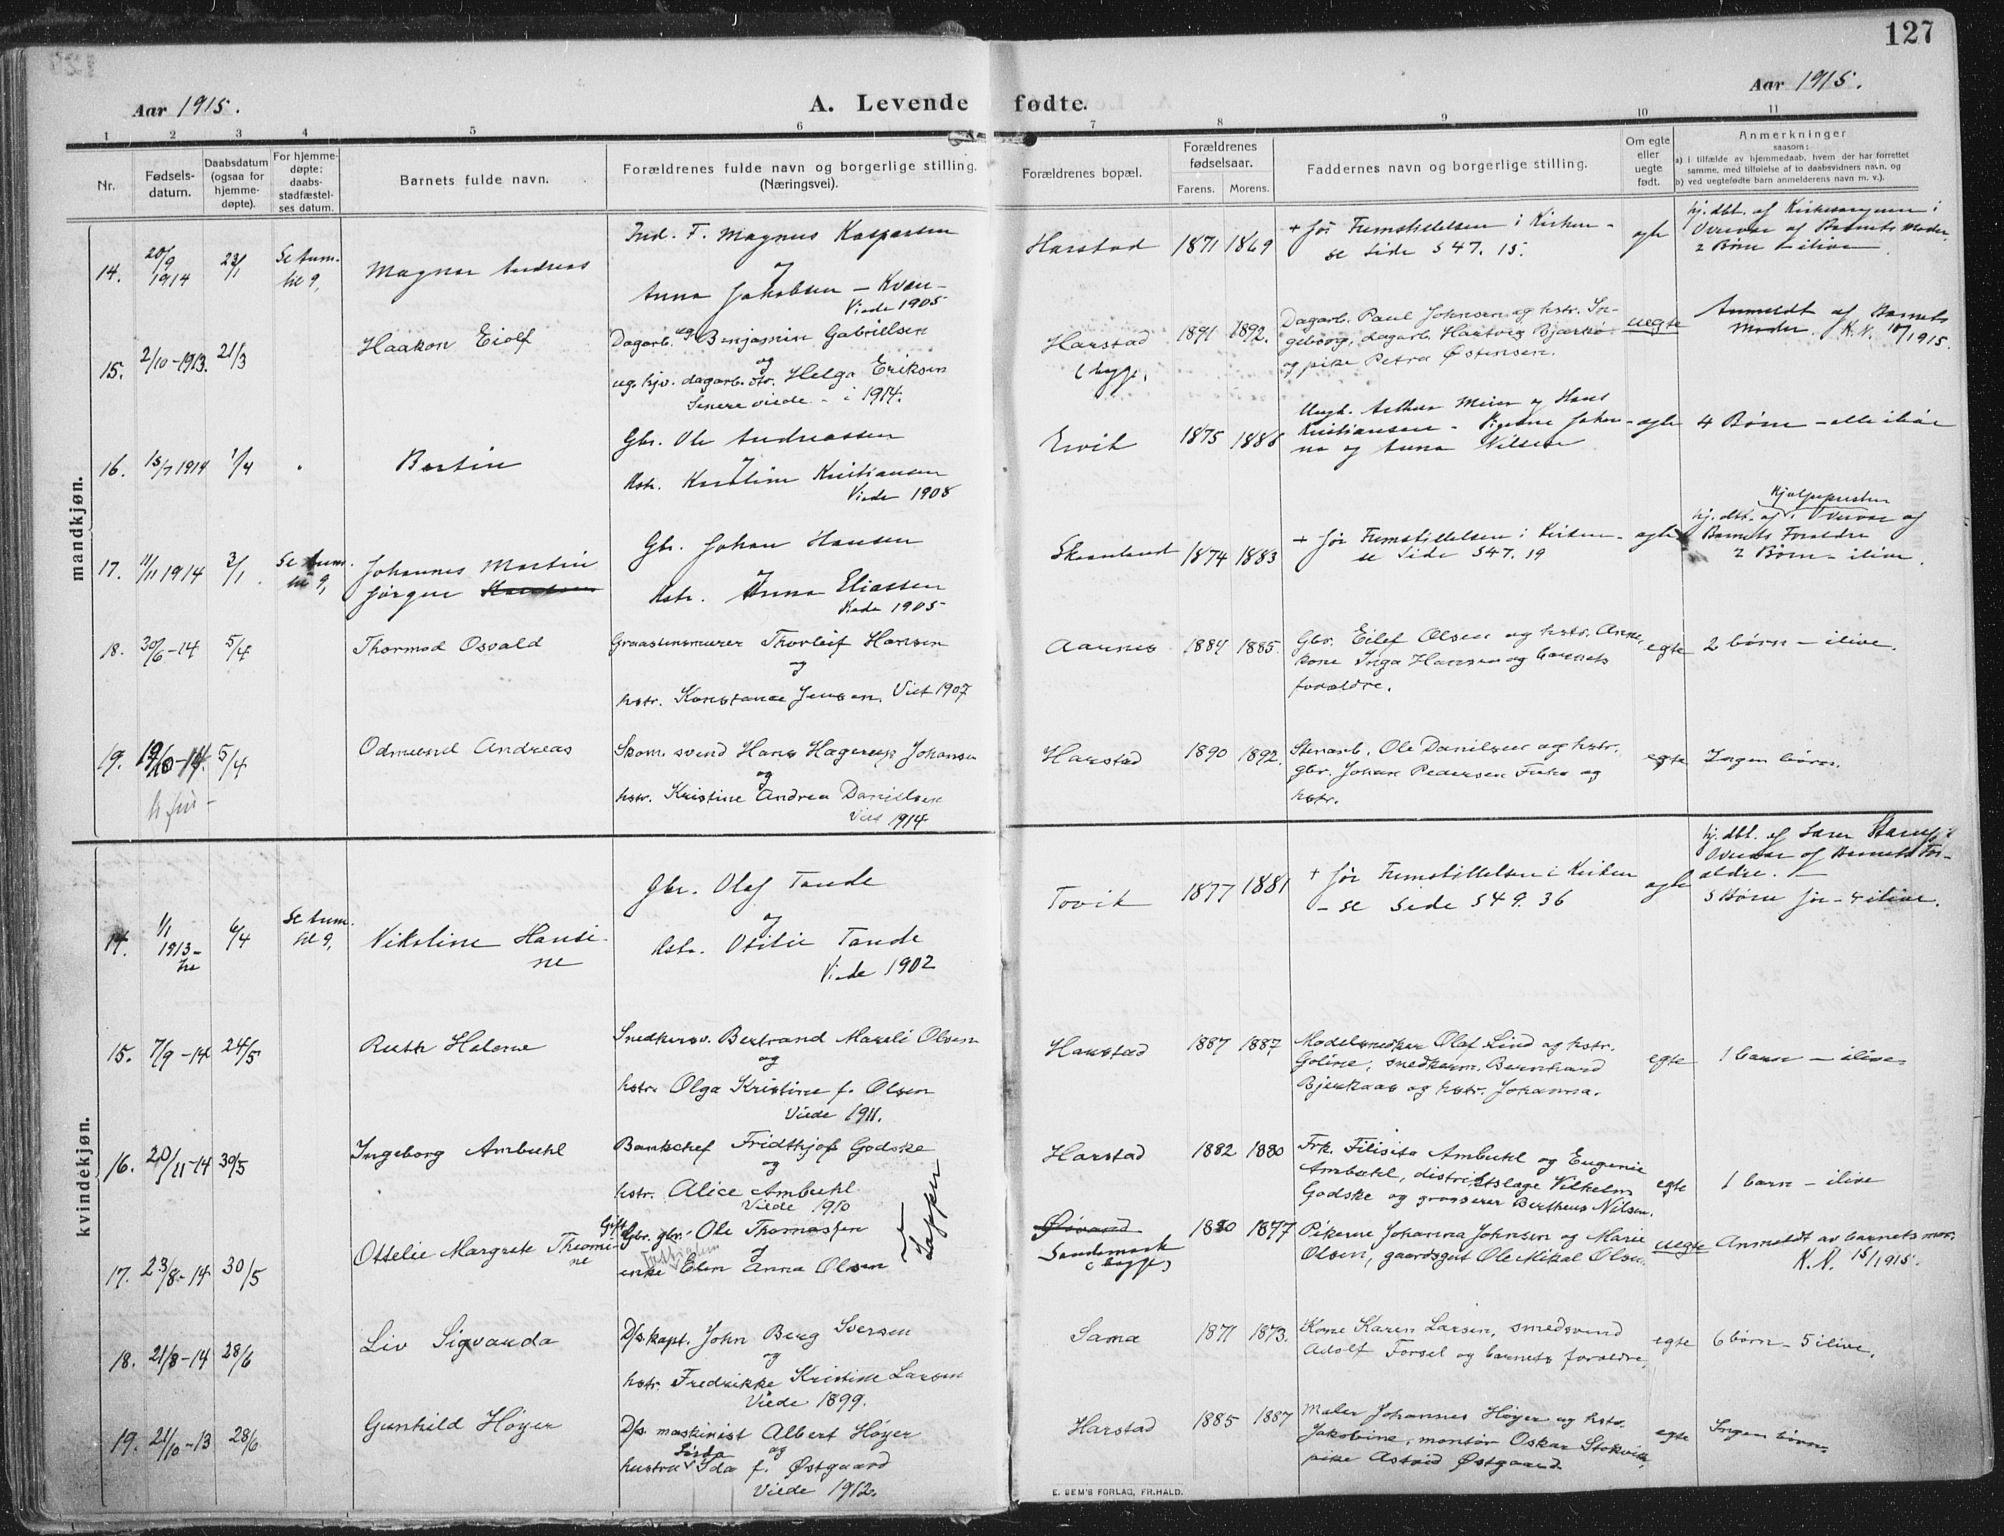 127
Aar 1915.
A. Levende fødte.
Aar 1915.
1 2 3 4 5 6 7 8 9 10 11
Nr.
Fødsels-
datum.
Daabsdatum
(ogsaa for
hjemme-
døpte).
For hjemme-
døpte:
daabs-
stadfæstel-
ses datum.
Barnets fulde navn.
Forældrenes fulde navn og borgerlige stilling.
(Næringsvei).
Forældrenes bopæl.
Forældrenes
fødselsaar.
Farens. Morens.
Faddernes navn og borgerlige stilling.
Om egte
eller
uegte
født.
Anmerkninger
saasom:
a) i tilfælde av hjemmedaab, hvem der har forrettet
samme, med tilføielse af to daabsvidners navn, og
b) ved uegtefødte barn anmelderens navn m. v.).
mandkjøn.
14.
20/9
1914
23/1
Se anm.
til 9,
Magnar Andreas
Ind. F. Magnus Kaspersen
og
Anna Jakobsen – Kvæn –
Viede 1905
Harstad
1871 1869
+ før Fremstillelsen i Kirken –
se Side 547. 15.
egte
hj. dbt. af Kirkesangeren i
Overvær af Barnets Moder.
2 Børn – ilive
15.
2/10-1913.
21/3
Haakon Eiolf
Dagarb. ug. Benjamin Gabrielsen
og
ug. hjv. dagarb. dtr. Helga Eriksen
Senere viede – i 1914.
Harstad
(bygd)
1891 1892.
Dagarb. Paul Johnsen og hstr. In-
geborg, dagarb. Hartvig Bjærkø
og pike Petra Østensen.
uegte
Anmeldt af Barnets
Moder. K.N. 10/1915.
16.
15/7 1914
1/4
Bertin
Gbr. Ole Andreassen
og
Hstr. Karoline Kristiansen
Viede 1908
Ervik
1875 1886
Ungk. Arthur Meier og Hans
Kristiansen – Pigerne Johan-
na og Anna Nilsen
egte
4 Børn – alle ilive
17.
11/11 1914
3/1
Se anm.
til 9,
Johannes Martin
Jørgen
Gbr. Johan Hansen
og
Hstr. Anna Eliassen
Viede 1905
Skaanland
1874 1883
+ før Fremstillelsen i Kirken –
se Side 547. 19
egte
Hjælpepresten
hj. dbt. af i Overvær af
Barnets Forældre
2 Børn – ilive.
18.
30/6-14
5/4
Thormod Osvald
Graastensmurer Thorleif Hansen
og
hstr. Konstanse Jensen. Viet 1907
Aarnes
1884 1885.
Gbr. Eilef Olsen og hstr. Anne,
Kone Inga Hansen og barnets
forældre.
egte
2 børn – ilive.
19.
19/10-14.
5/4
Odmund Andreas
Skom. svend Hans Hagerup Johansen
og
hstr. Kristine Andrea Danielsen
Viet 1914
Harstad
1890 1892.
Stenarb. Ole Danielsen og hstr.
gbr. Johan Pedersen Fuhr og
hstr.
egte
Ingen børn.
kvindekjøn.
14.
1/1
1913
6/4
Se anm.
til 9,
Nikoline Hansi-
ne
Gbr. Olaf Tande
og
Hstr. Otilie Tande
Viede 1902
Tovik
1877 1881
+ før Fremstillelsen i Kirken
– se Side 549. 36
egte
hj. dbt. af Lærer Stang i
Overvær af Barnets For-
ældre.
5 Børn før – 4 ilive.
15.
7/9-14
24/5
Ruth Helene
Snedkersv. Bertrand Marcli Olsen
og
hstr. Olga Kristine f. Olsen
Viede 1911.
Harstad
1887 1887
Modelsnedker Olaf Lind og hstr.
Goline, snedkerm. Bernhard
Bjerkaas og hstr. Johanna.
egte
1 barn – ilive.
16.
20/11-14
30/5
Ingeborg Ambuhl
Bankchef Fridthjof Godske
og
hstr. Alice Ambuhl
Viede 1910
Harstad
1882 1880
Frk. Filisita Ambuhl og Eugenie
Ambuhl, distriktslæge Vilhelm
Godske og grosserer Bertheus Nilsen.
egte
1 barn – ilive
17.
23/8-14
30/5
Ottelie Margrete Theomi-
ne
Gift
Gbr. gbr. Ole Thomassen
og
enke Elen Anna Olsen
Lapper
Sandsmark
(bygd)
1880 1877
Pikerne Johanna Johnsen og Marie
Olsen, gaardsgut Ole Mikal Olsen
uegte
Anmeldt av barnets mor.
K.N. 15/1915.
18.
21/8-14
28/6
Liv Sigvanda
D/s kapt. John Berg Iversen
og
hstr. Fredrikke Kristine Larsen
Viede 1899.
Sama
1871 1873.
Kone Karen Larsen, smedsvend
Adolf Forsel og barnets forældre,
egte
6 børn – 5 ilive.
19.
21/10-13
28/6
Gunhild Høyer
D/s. maskinist Albert Høyer
og
hustru Ida f. Østgaard
Viede 1912.
Harstad
1885 1887
Maler Johannes Høyer og hstr.
Jakobine, montør Oskar Stokvik,
pike Astrid Østgaard.
egte
Ingen børn
E. SEM'S FORLAG, FR.HALD.